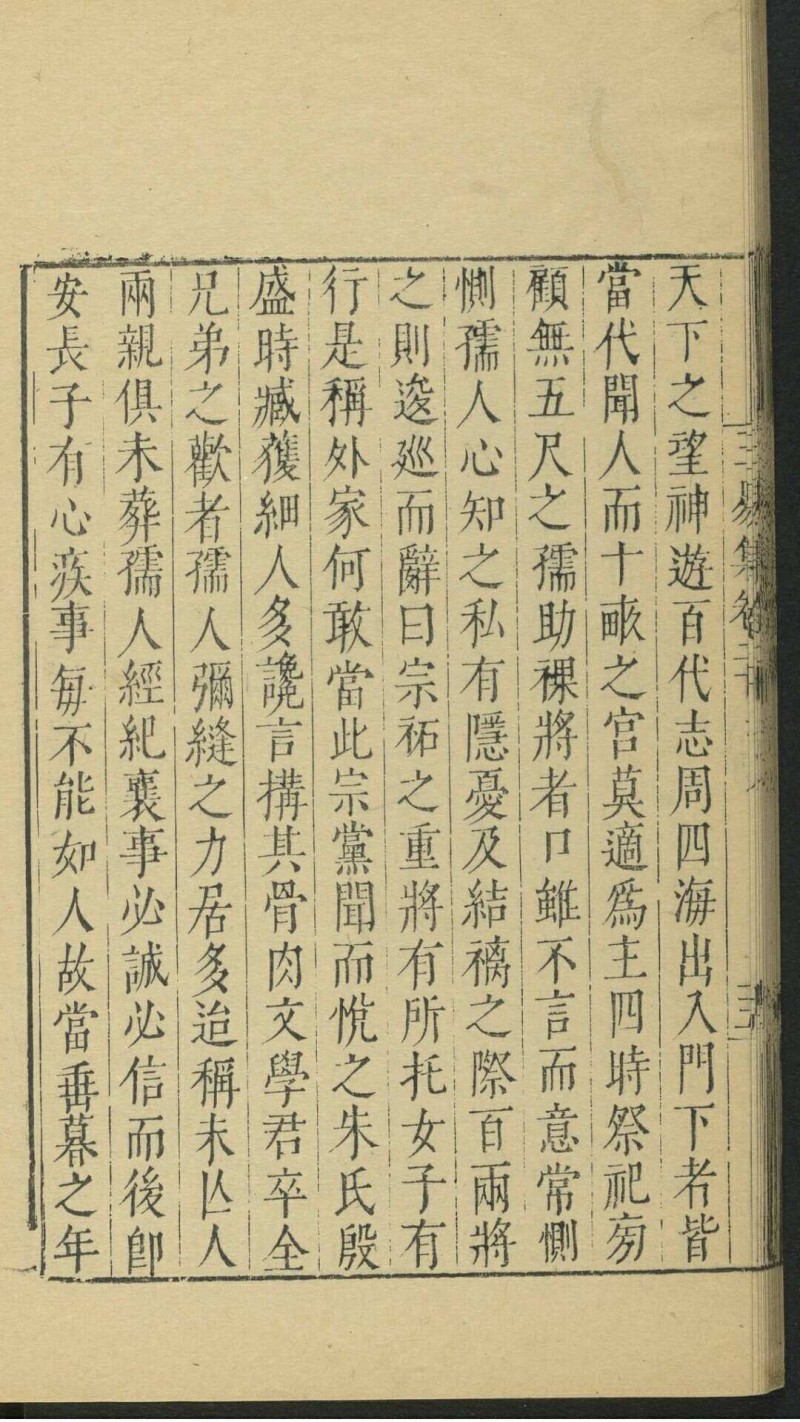 天下之望神遊百代志周四海出入門下者皆
當代聞人而十畞之宮莫適爲主四時祭祀旁
顧無五尺之孺助祼將者口雖不言而意常惻
惻孺人心知之私有隱憂及結褵之際百兩將
之則逡廵而辭曰宗祏之重將有所托女子有
行是稱外家何敢當此宗黨聞而悅之朱氏殷
盛時臧獲細人多讒言搆其骨肉文學君卒全
兄弟之歡者孺人彌縫之力居多迨稱未亾人
兩親俱未葬孺人經紀襄事必誠必信而後卽
安長子有心疾事每不能如人故當垂暮之年
三易集卷二十